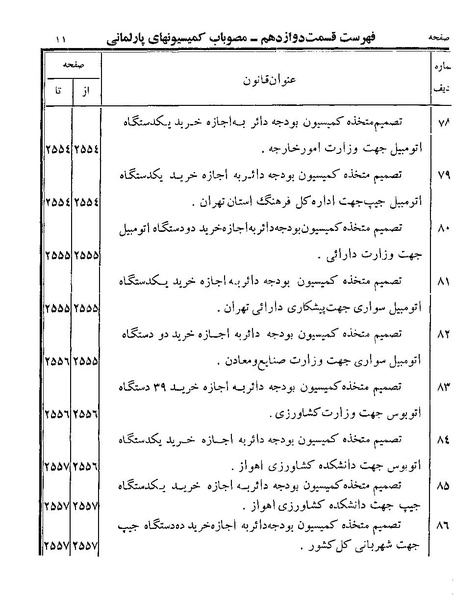 صفحه فهرست قسمت دوازدهم ــ مصوباب کمیسیونهای پارلمانی ۱۱
شماره ردیف عنوان قانون صفحه
از تا
۷۸ تصمیم متخذه کمیسیون بودجه دائر به اجازه خرید یکدستگاه
اتومبیل جهت وزارت امور خارجه . ۲۵۵۴ ۲۵۵۴
۷۹ تصمیم متخذه کمیسیون بودجه دائر به اجازه خرید یکدستگاه
اتومبیل جیپ جهت اداره کل فرهنگ استان تهران . ۲۵۵۴ ۲۵۵۴
۸۰ تصمیم متخذه کمیسیون بودجه دائر به اجازه خرید دو دستگاه اتومبیل
جهت وزارت دارائی . ۲۵۵۵ ۲۵۵۵
۸۱ تصمیم متخذه کمیسیون بودجه دائر به اجازه خرید یکدستگاه
اتومبیل سواری جهت پیشکاری دارائی تهران . ۲۵۵۵ ۲۵۵۵
۸۲ تصمیم متخذه کمیسیون بودجه دائر به اجازه خرید دو دستگاه
اتومبیل سواری جهت وزارت صنایع و معادن . ۲۵۵۵ ۲۵۵۶
۸۳ تصمیم متخذه کمیسیون بودجه دائر به اجازه خرید ۳۹ دستگاه
اتوبوس جهت وزارت کشاورزی . ۲۵۵۶ ۲۵۵۶
۸۴ تصمیم متخذه کمیسیون بودجه دائر به اجازه خرید یکدستگاه
اتوبوس جهت دانشکده کشاورزی اهواز . ۲۵۵۶ ۲۵۵۷
۸۵ تصمیم متخذه کمیسیون بودجه دائر به اجازه خرید یکدستگاه
جیپ جهت دانشکده کشاورزی اهواز . ۲۵۵۷ ۲۵۵۷
۸۶ تصمیم متخذه کمیسیون بودجه دائر به اجازه خرید ده دستگاه جیپ
جهت شهربانی کل کشور . ۲۵۵۷ ۲۵۵۷